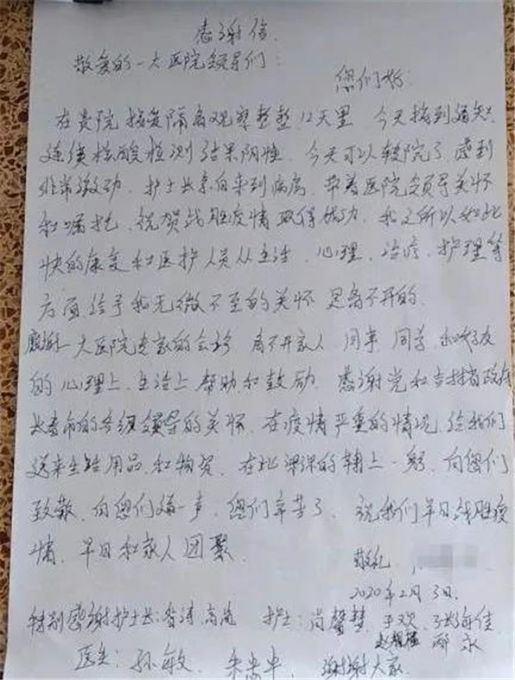 感谢信
敬爱的一大医院领导们：
您们好
在贵院接受隔离观察整整12天里 今天接到通知
连续核酸检测结果阴性、今天可以转院了 感到
非常激动、护士长亲自来到病房、带着医院领导关怀
和嘱托、祝贺战胜疫情取得成功、我之所以如此
快的康复和医护人员从生活、心理、治疗、护理等
方面给予我无微不至的关怀 是离不开的
感谢一大医院专家的会诊 离不开家人 同事 同学 和好友
的心理上、生活上、帮助和鼓励、感谢党和吉林省政府
长春市的各级领导的关怀、在疫情严重的情况、给我们
送来生活用品、和物资、在此深深的鞠上一躬、向您们
致敬、向您们道一声、您们辛苦了、祝我们早日战胜疫
情、早日和家人团聚
敬礼
2020年2月3日
特别感谢护士长：  护士：尚馨慧、于欢、张海佳
医生：孙敏、 谢谢大家